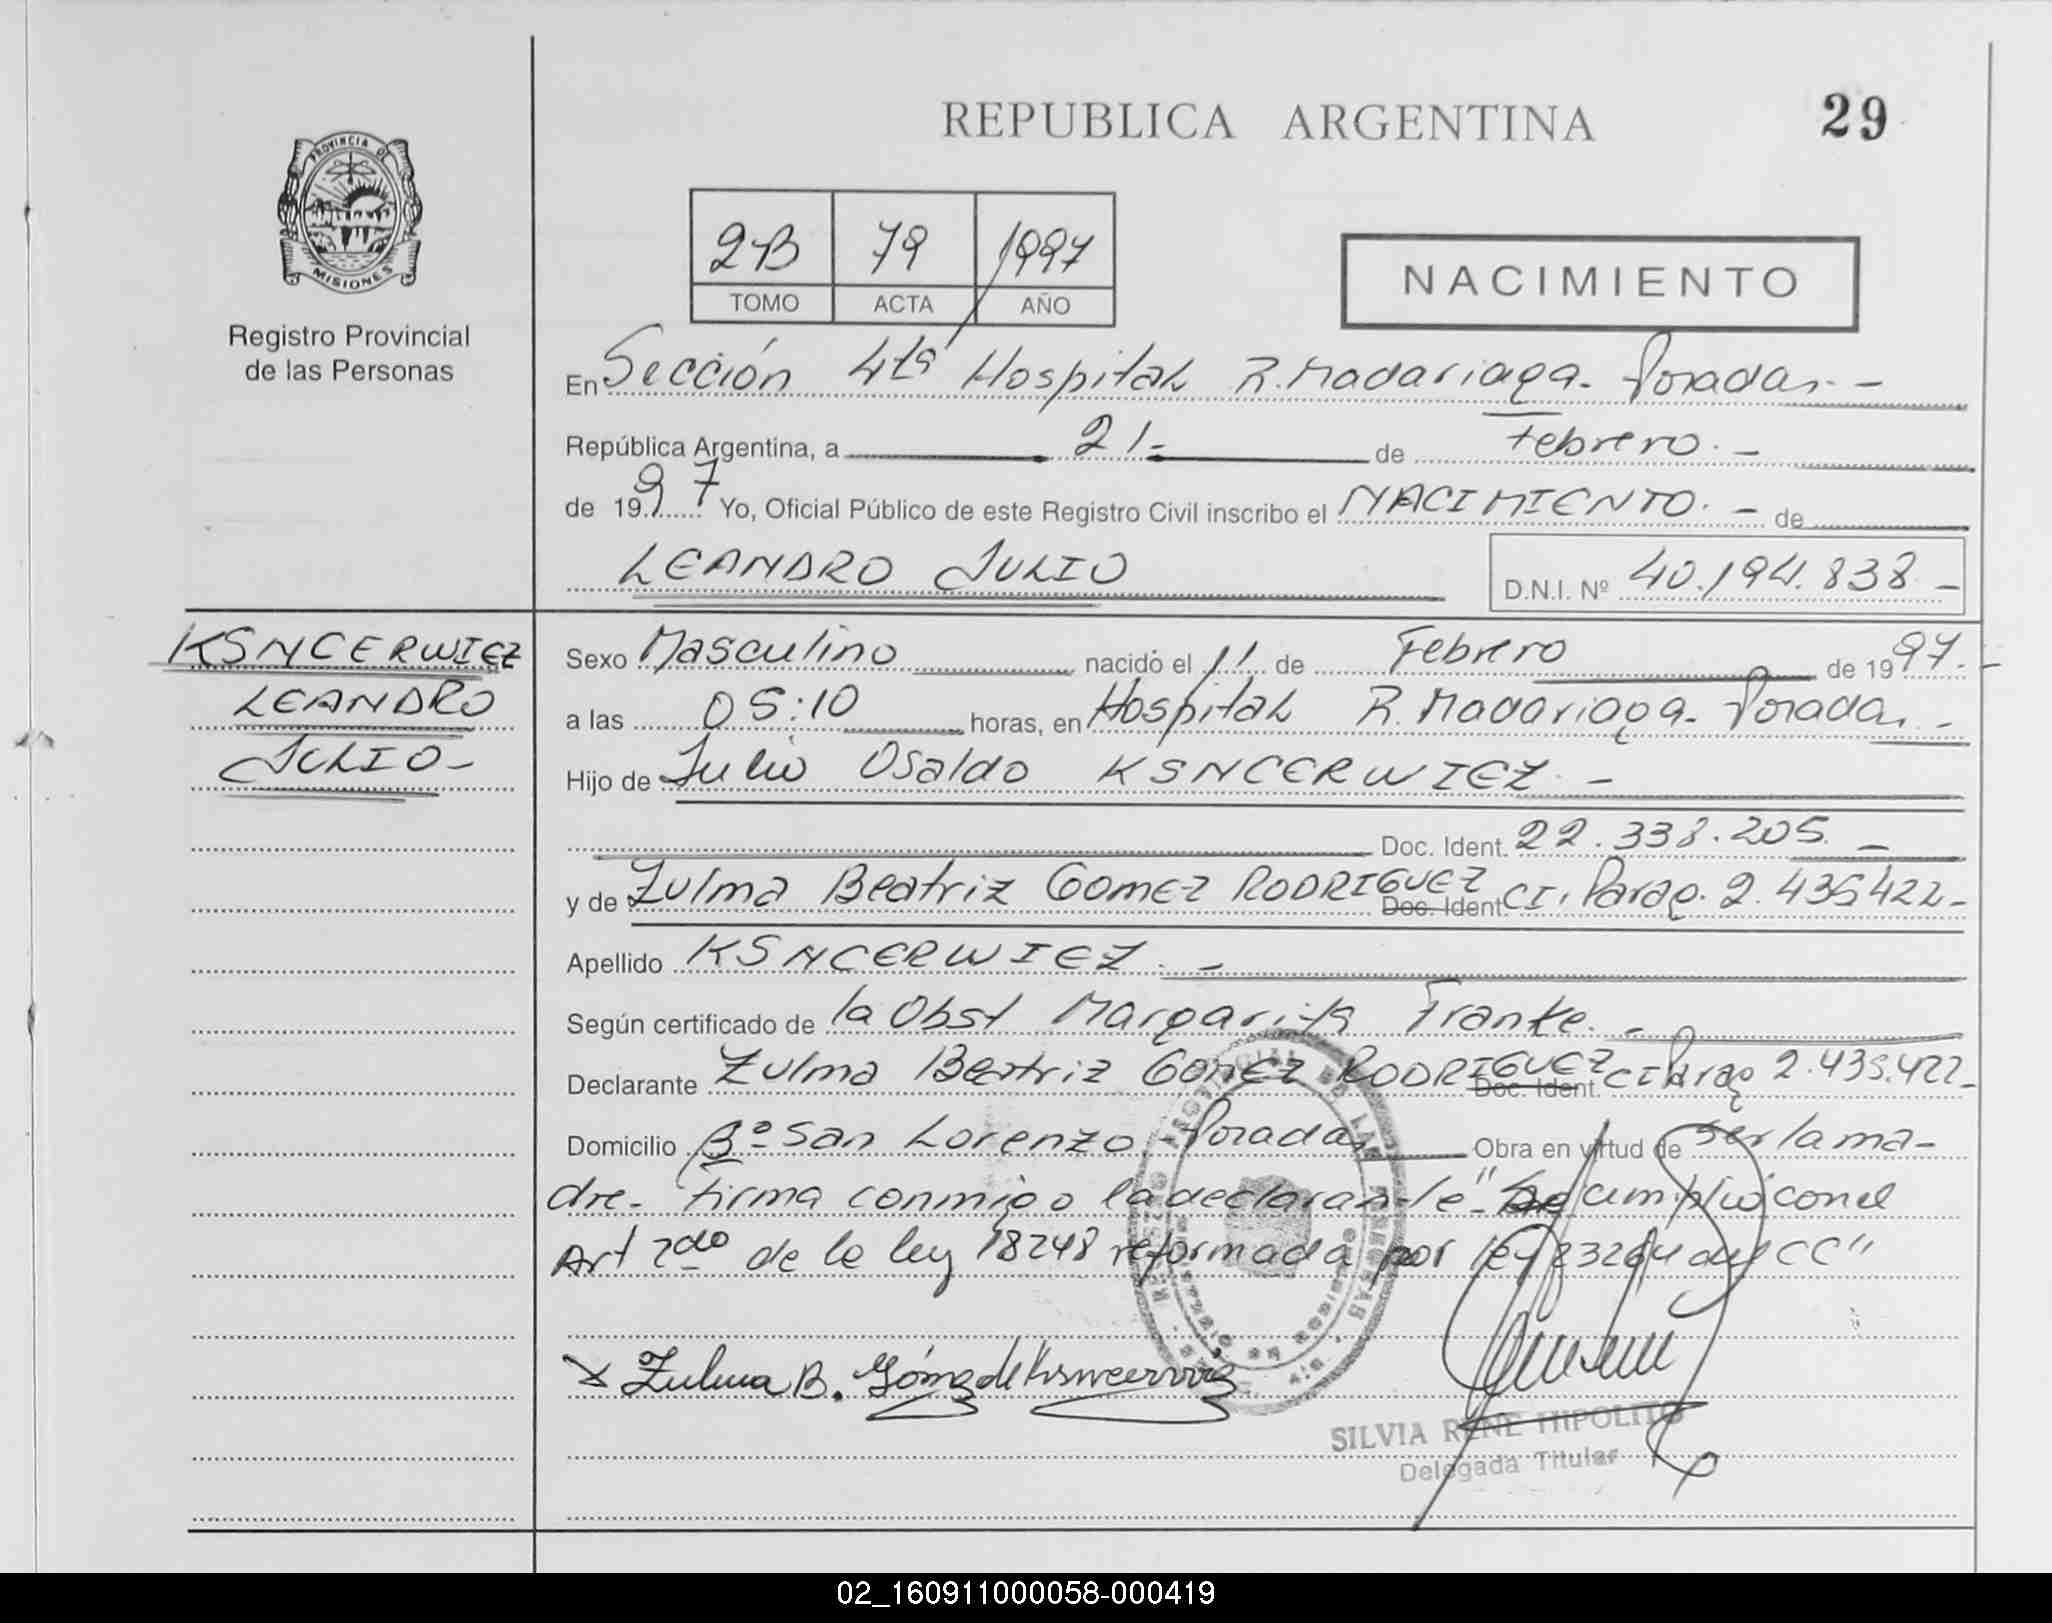 REPUBLICA ARGENTINA
29
PROVINCIA DE MISIONES
Registro Provincial
de las Personas
2B 79 1997
TOMO ACTA AÑO
NACIMIENTO
En Sección 4ta Hospital R. Madariaga - Posadas. -
República Argentina, a 21- de Febrero. -
de 1997 Yo, Oficial Público de este Registro Civil inscribo el NACIMIENTO. - de
LEANDRO JULIO D.N.I. Nº 40.194.838 -
KSNCERWIEZ
LEANDRO
JULIO -
Sexo Masculino nacido el 11 de Febrero de 1997. -
a las 05:10 horas, en Hospital R. Madariaga - Posadas. -
Hijo de Julio Osaldo KSNCERWIEZ. -
Doc. Ident. 22.338.205. -
y de Zulma Beatriz Gomez RODRIGUEZ Doc. Ident CI. Parag. 2.435422 -
Apellido KSNCERWIEZ. -
Según certificado de la Obst Margarita Franke. -
Declarante Zulma Beatriz Gomez RODRIGUEZ Doc. Ident. CI Parag 2.435.422 -
Domicilio Bº San Lorenzo - Posadas Obra en virtud de ser la ma-
dre - firma conmigo la declarante - "Se cumplió con el
Art 2do de la ley 18248 reformada por ley 23264 del CC"
Zulma B. Gómez de Ksncerwiez
SILVIA RENE HIPOLITO
Delegada Titular
02_160911000058-000419